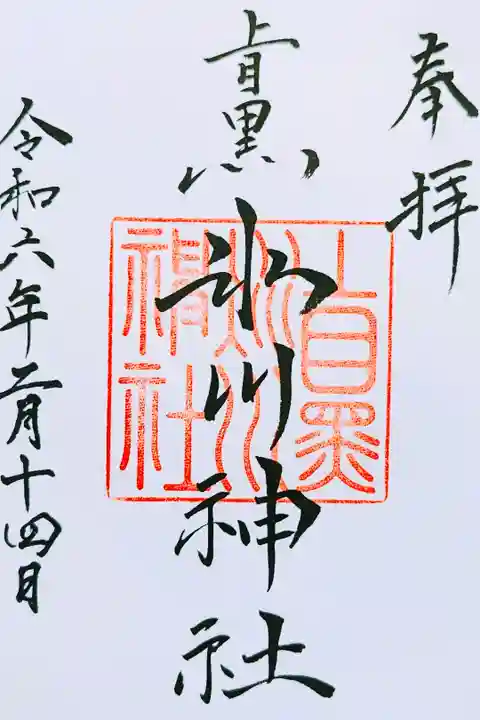 奉拝
上目黒氷川神社
上目黒
氷川
神社
令和六年二月十四日